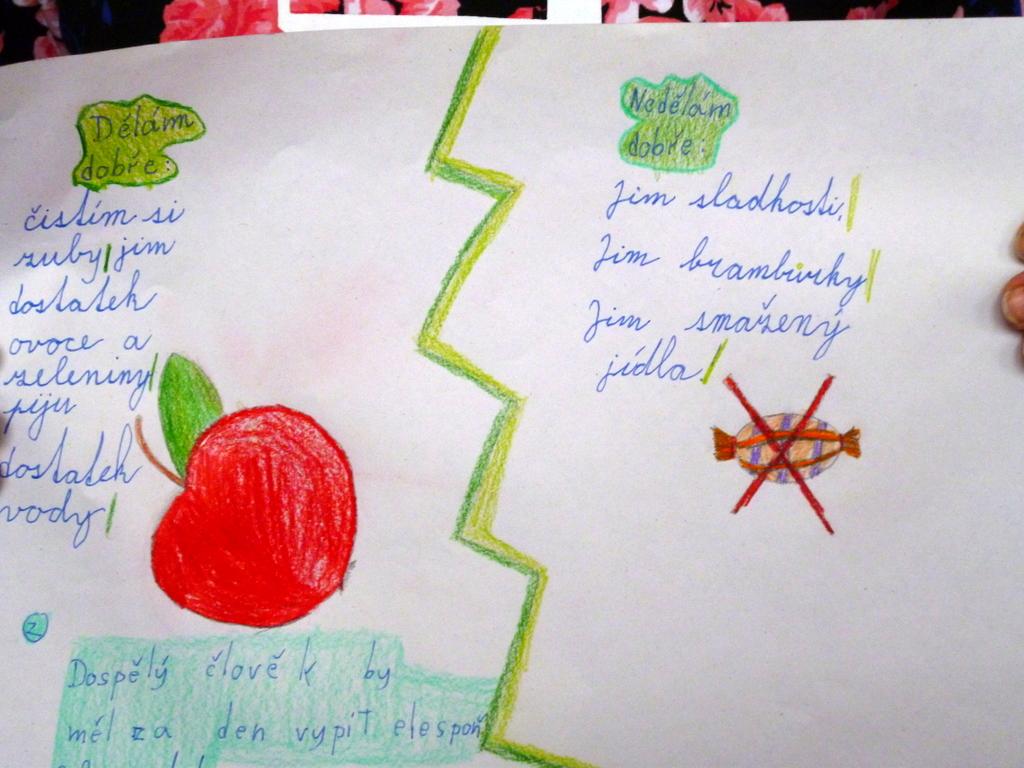 Dělám
dobře:
čistím si
zuby, jim
dostatek
ovoce a
zeleniny
piju
dostatek
vody
Nedělám
dobře:
Jim sladkosti,
Jim brambůrky
Jim smažený
jídla
2
Dospělý člověk by
měl za den vypít elespoň